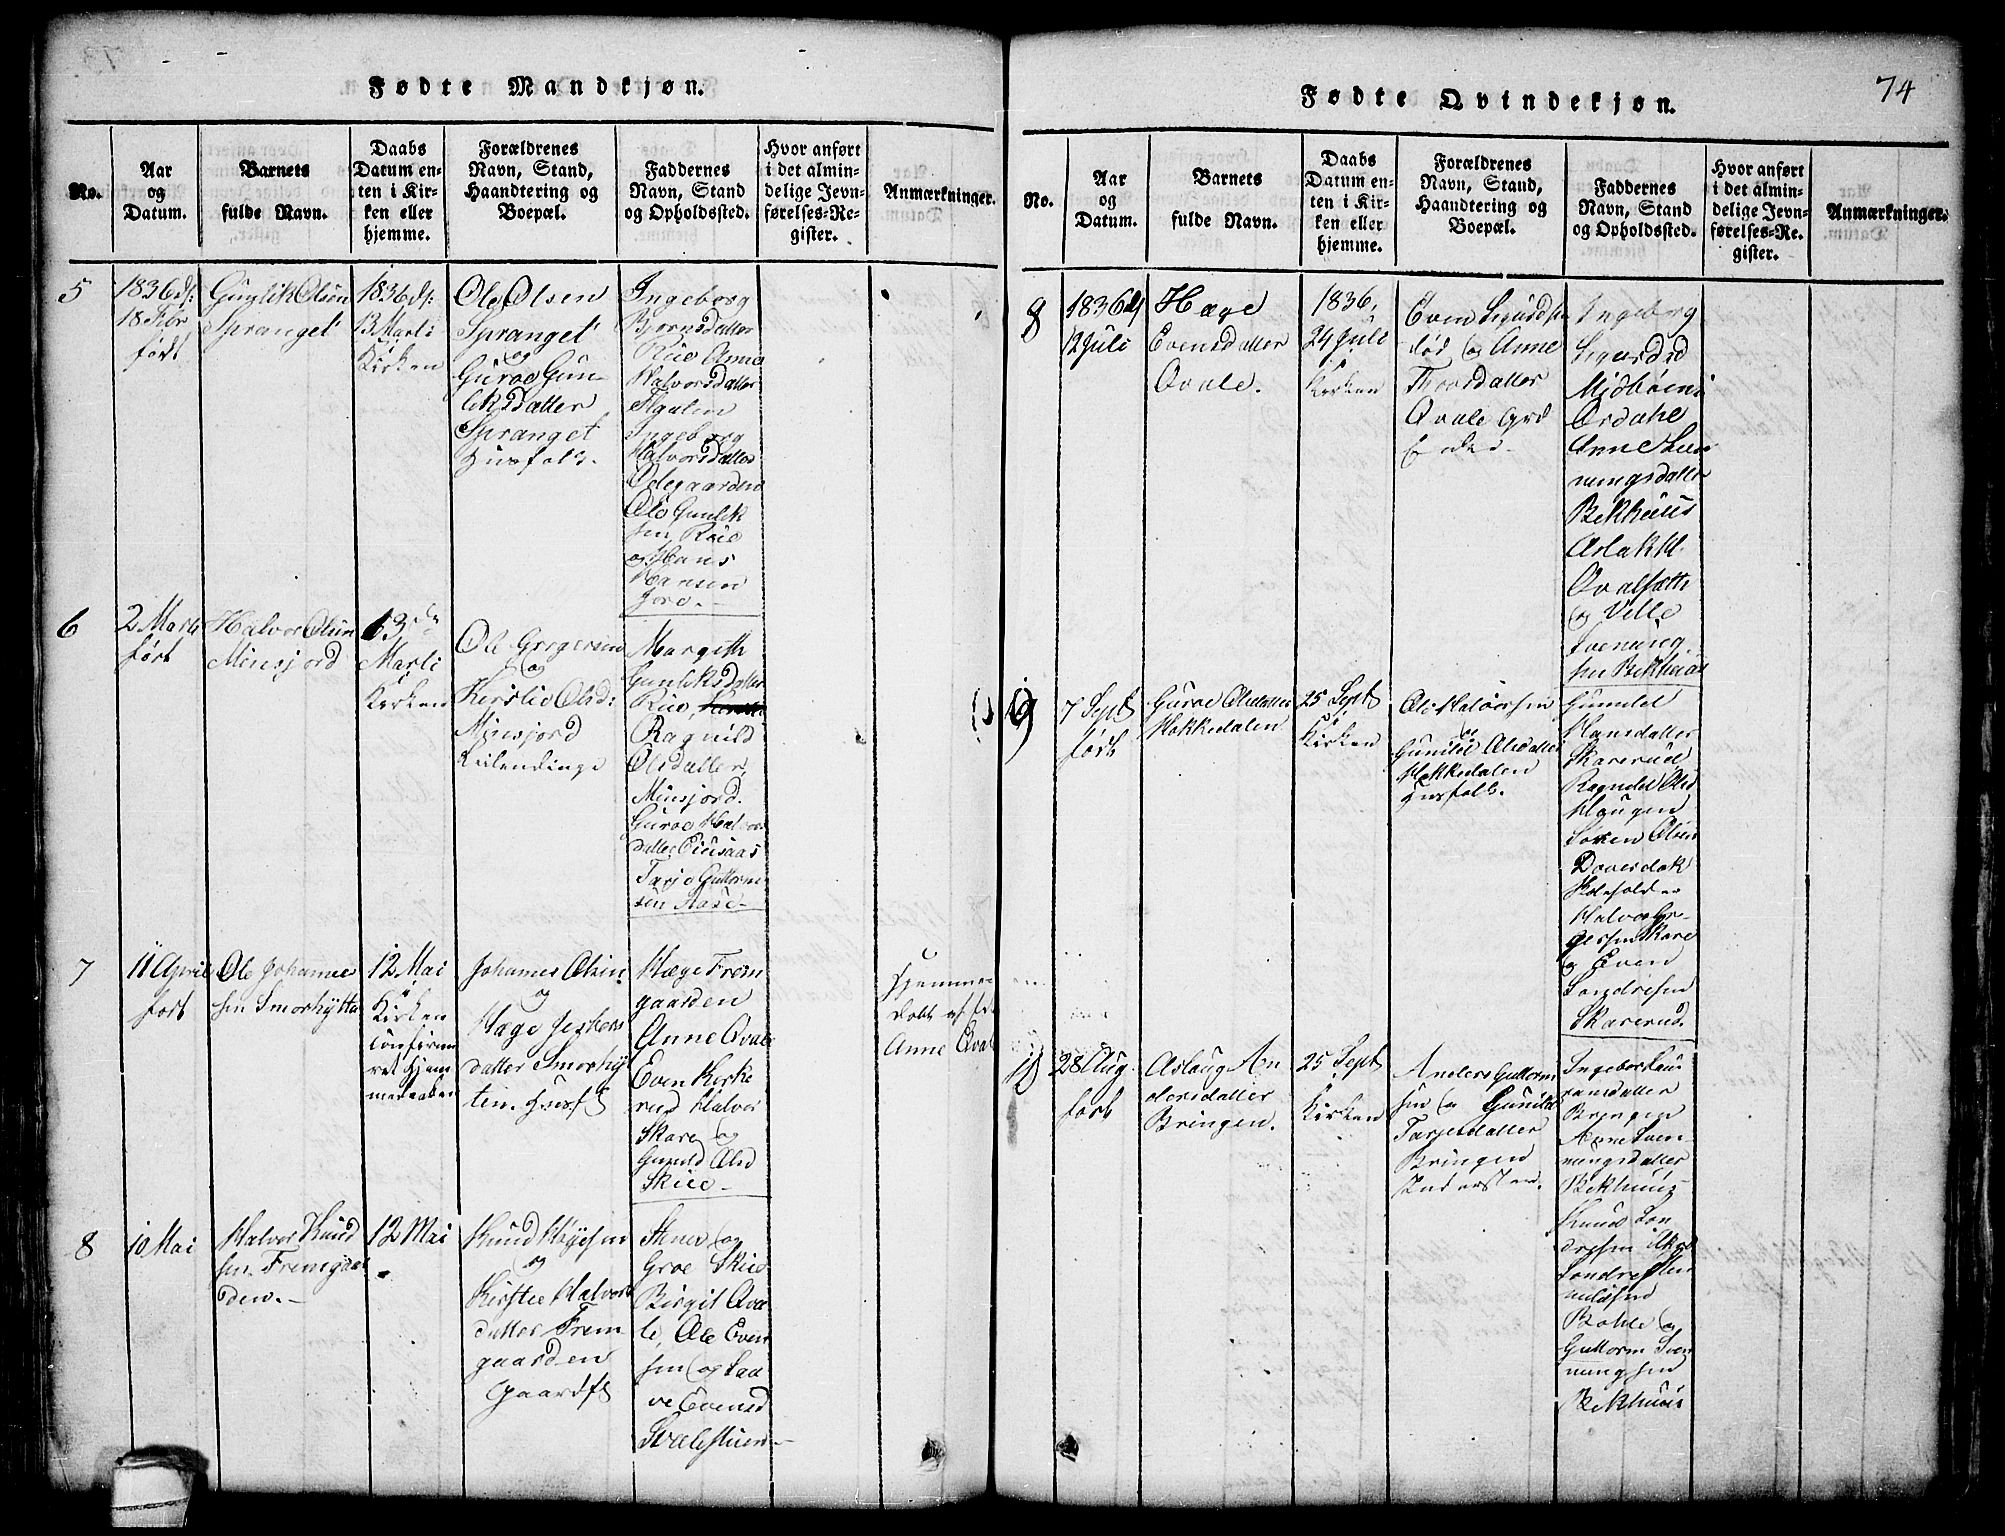 74
Fødte Mandkjøn.
No.
Aar
og
Datum.
Barnets
fulde Navn.
Daabs
Datum en-
ten i Kir-
ken eller
hjemme.
Forældrenes
Navn, Stand,
Haandtering og
Boepæl.
Faddernes
Navn, Stand
og Opholdssted.
Hvor anført
i det almin-
delige Jevn-
førelses-Re-
gister.
Anmærkninger.
5
1836 d:
18 Febr
født
Gunlik Olsen
Spranget
1836 d:
13 Marti
i
Kirken
Ole Olsen
Spranget
og
Guroe Gun-
liksdatter
Spranget
Huusfolk.
Ingeborg
Bjørnsdatter
Rue Anne
Halvorsdatter
Ingeborg
Halvorsdatter
Ødegaarden
Ole Gunlik
sen Rue
og Hans
Hansen
Jore.
6
2 Marti
født
Halvor Olsen
Minsjord
13de
Marti
Kirken
Ole Gregersen
og
Kirstie Olsd:
Minsjord
Margith
Gunliksdatter
Rue,
Ragnild
Olsdatter,
Minsjord.
Guroe Halvors
datter
Tarje Guttorm
sen Aase.
7
11 April
født
Ole Johanne
sen Smørhytta
12 Mai
i
Kirken
confirme
ret Hjem
medaaben
Johannes Olsen
og
Hæge
datter Smørhyt
ten. Huusf
Hæge Frem
gaarden
Anne Qvale
Even Kirke
rud Halvor
Skare og
Gunild Olsd
Skiee
Hjemme
døbt af
Anne Qvale
8
10 Mai
Halvor Knud
sen Fremgaar
den.
12 Mai
Knud
og
Kirstie Halvors
datter Frem
gaarden
Gaardf
Stener og
Groe Skiee
Birgit Qva
le, Ole Even
sen og Saa
ve Evensd
Qvalestuen
Fødte Qvindekjøn.
No.
Aar
og
Datum.
Barnets
fulde Navn.
Daabs
Datum en-
ten i Kir-
ken eller
hjemme.
Forældrenes
Navn, Stand,
Haandtering og
Boepæl.
Faddernes
Navn, Stand
og Opholdssted.
Hvor anført
i det almin-
delige Jevn-
førelses-Re-
gister.
Anmærkninger.
8
1836 d
12 Juli
Hæge
Evensdatter
Qvale.
1836,
24 Juli
i
Kirken
Even Sigurdsen
død og Anne
Thorsdatter
Qvale
Ingeborg
Sigurdsd
Midbøen i
Ørdahl
Anne Sven
nungsdatter
Bekhuus
Aslak H.
Qvalsætt
og Velle
Svenung
sen Bekhuus
9
7 Sept
født
Guroe Olsdatter
Hokkedalen
25 Sept
i
Kirken
Ole Halvorsen
og
Gunild Olsdatter
Hokkedalen
Huusfolk.
Gunnild
Hansdatter
Skarerud
Ragnild Olsd
Haugen
Søren Olsen
Halvor Gre-
gersen Skare
og Even
Sondresen
Skarerud.
10
28 Aug.
født
Aslaug An
dersdatter
Bringen.
25 Sept
i
Kirken
Anders Guttorm
sen og Gunild
Tarjesdatter
Bringen
Inderst
datter
Bringen
Anne Sven
nungsdatter
Bekhuus
Knud Son
dresen
Sondre
Guttorm Sven
nungsen
Bekhuus